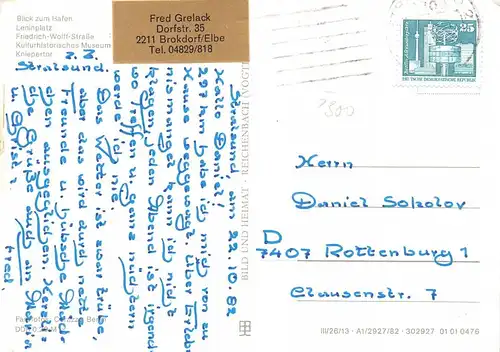 Blick zum Hafen
Leninplatz
Friedrich-Wolff-Straße
Kulturhistorisches Museum
Kniepertor
z. Z.
Stralsund
Fred Grelack
Dorfstr. 35
2211 Brokdorf/Elbe
Tel. 04829/818
Stralsund am 22.10.82
Hallo Daniel!
297 km habe ich mich von zu
Hause weggewagt. Über Erleb-
nismangel kann ich nicht
klagen, jeden Abend ist irgend-
wo Treffen u. ganz nüchtern
werde ich nie.
Das Wetter ist zwar trübe,
aber das wird durch nette
Freunde u. hübsche Mäd-
chen ausgeglichen. Herzli-
che Grüße auch an Maria
u. Christi
Fred.
BILD UND HEIMAT · REICHENBACH (VOGTL
25
DEUTSCHE DEMOKRATISCHE REPUBLIK
Herrn
Daniel Sokolov
D
7407 Rottenburg 1
Clausenstr. 7
III/26/13 · A1/2927/82 · 302927 01 01 0476